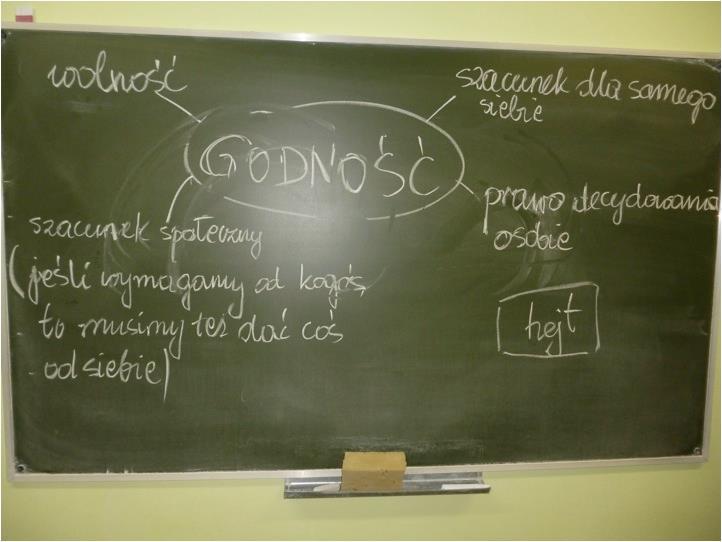 wolność
szacunek dla samego
siebie
GODNOŚĆ
prawo decydowania
osobie
szacunek społeczny
(jeśli wymagamy od kogoś,
to musimy też dać coś
od siebie)
hejt